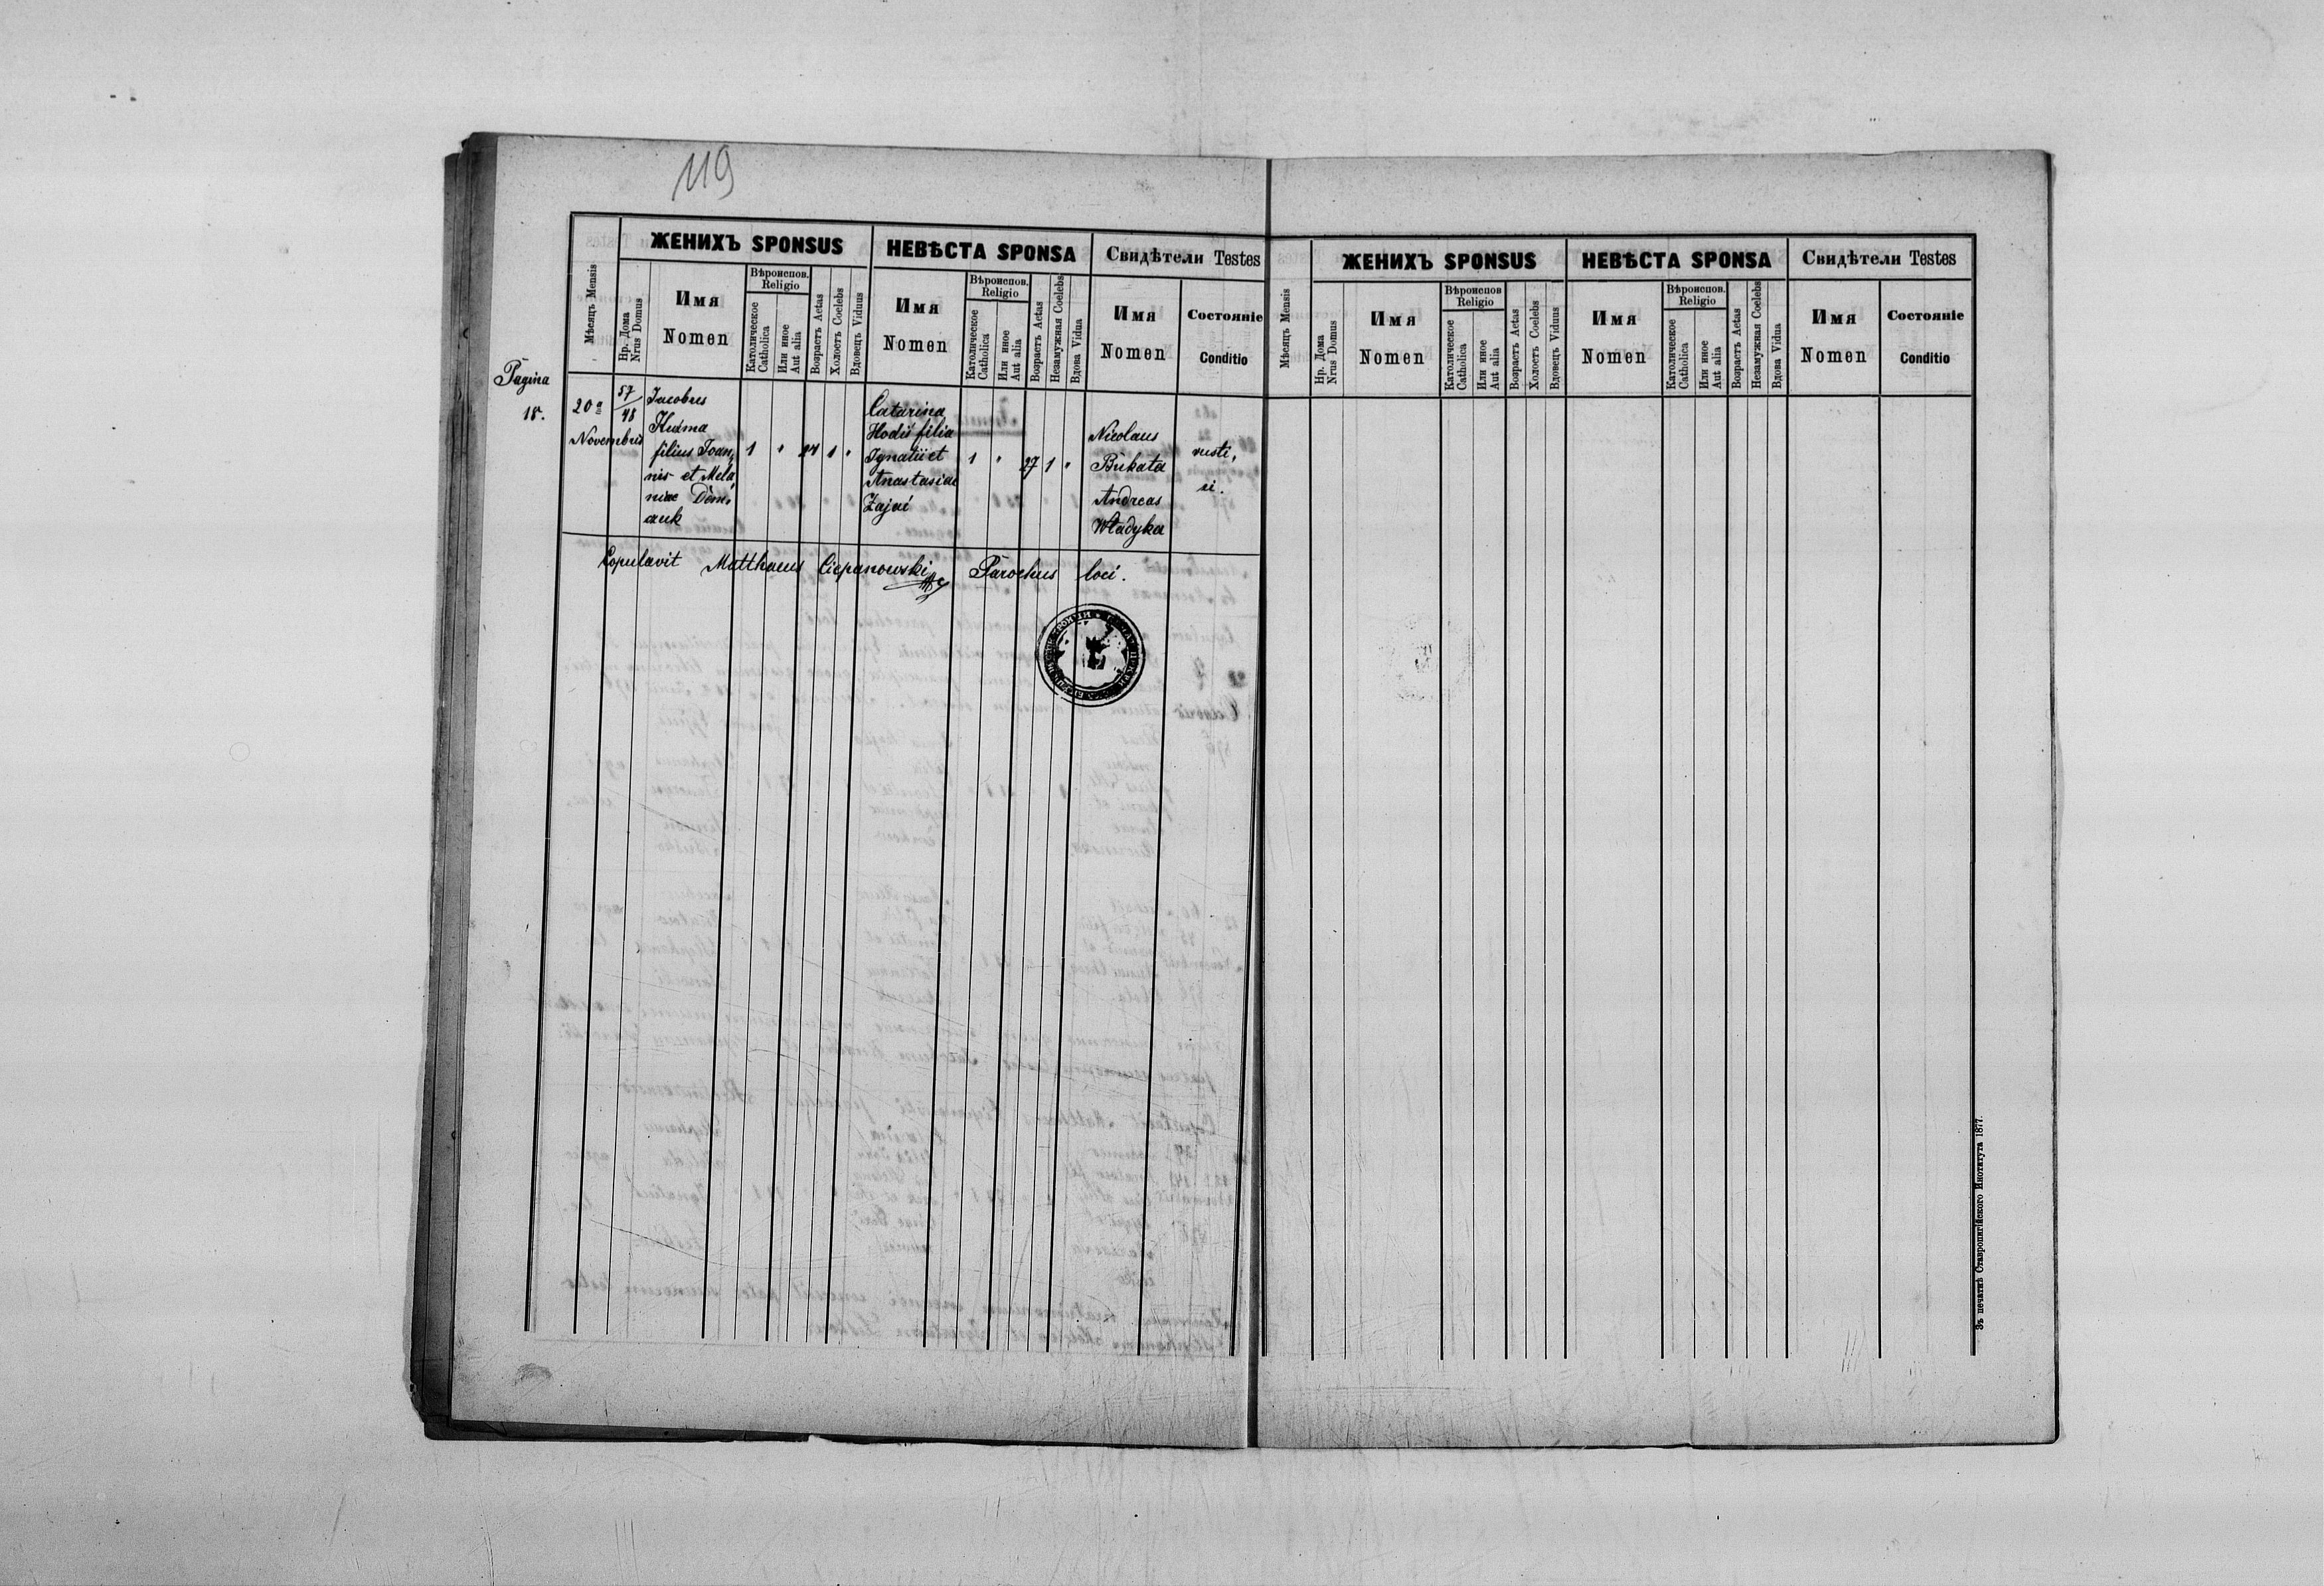 119
ЖЕНИХЪ SPONSUS
НЕВѢСТА SPONSA
Свидѣтели Testes
Мѣсяцъ Mensis
Нр. Дома
Nrus Domus
Имя
Nomen
Вѣроиспов.
Religio
Католическое
Catholica
Или иное
Aut alia
Возрастъ Aetas
Холостъ Coelebs
Вдовецъ Viduus
Имя
Nomen
Вѣроиспов.
Religio
Католическое
Catholica
Или иное
Aut alia
Возрастъ Aetas
Незамужная Coelebs
Вдова Vidua
Имя
Nomen
Состояніе
Conditio
Pagina
18.
20a
Novembris
57
48
Jacobus
Kuźma
filius Joan,
nis et Mela
niae Dem,
czuk
1 " 24 1 "
Catarina
Hodii filia
Ignatii et
Anastasiae
Zajac
1 " 27 1 "
Nicolaus
Bukata
Andreas
Władyka
rusti,
ci.
Copulavit Matthaeus Ciepanowski Parochus loci.
ЖЕНИХЪ SPONSUS
НЕВѢСТА SPONSA
Свидѣтели Testes
Мѣсяцъ Mensis
Нр. Дома
Nrus Domus
Имя
Nomen
Вѣроиспов
Religio
Католическое
Catholica
Или иное
Aut alia
Возрастъ Aetas
Холостъ Coelebs
Вдовецъ Viduus
Имя
Nomen
Вѣроиспов.
Religio
Католическое
Catholica
Или иное
Aut alia
Возрастъ Aetas
Незамужная Coelebs
Вдова Vidua
Имя
Nomen
Состояніе
Conditio
Зъ печатнѣ Ставропигійского Института 1877.